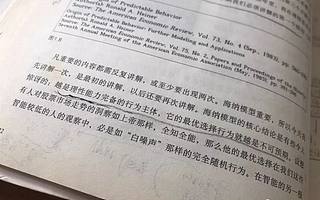 Origin of Predictable Behavior
Author(s): Ronald A. Heiner
Source: The American Economic Review, Vol. 73, No. 4 (Sep., 1983), pp.
Origin of Predictable Behavior: Further Modeling and Applications
Author(s): Ronald A. Heiner
Source: The American Economic Review, Vol. 75, No. 2, Papers and Proceedings of the
Seventh Annual Meeting of the American Economic Association (May, 1985), pp.
图1.8
凡重要的内容都需反复讲解，或至少要出现两次。海纳模型重要，所以今天
先讲解一次，是最初的讲解，以后还要再次讲解。海纳模型的核心结论是有些令人
惊讶的，越是理性能力完备的行为主体，它的最优选择行为就越是不可预期。设想
有人对股票市场走势的洞察如上帝那样，全知全能，那么他的最优选择在我们这些
智能较低的人的观察中，必是如“白噪声”那样的完全随机行为。在智能的另一极